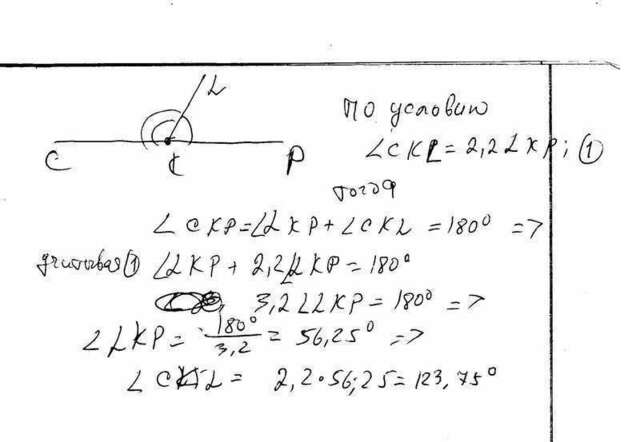 L
C K P
по условию
∠CKL = 2,2∠LKP; ①
тогда
∠CKP = ∠LKP + ∠CKL = 180° =>
учитывая ① ∠LKP + 2,2∠LKP = 180°
3,2∠LKP = 180° =>
∠LKP = 180°/3,2 = 56,25° =>
∠CKL = 2,2 • 56,25 = 123,75°